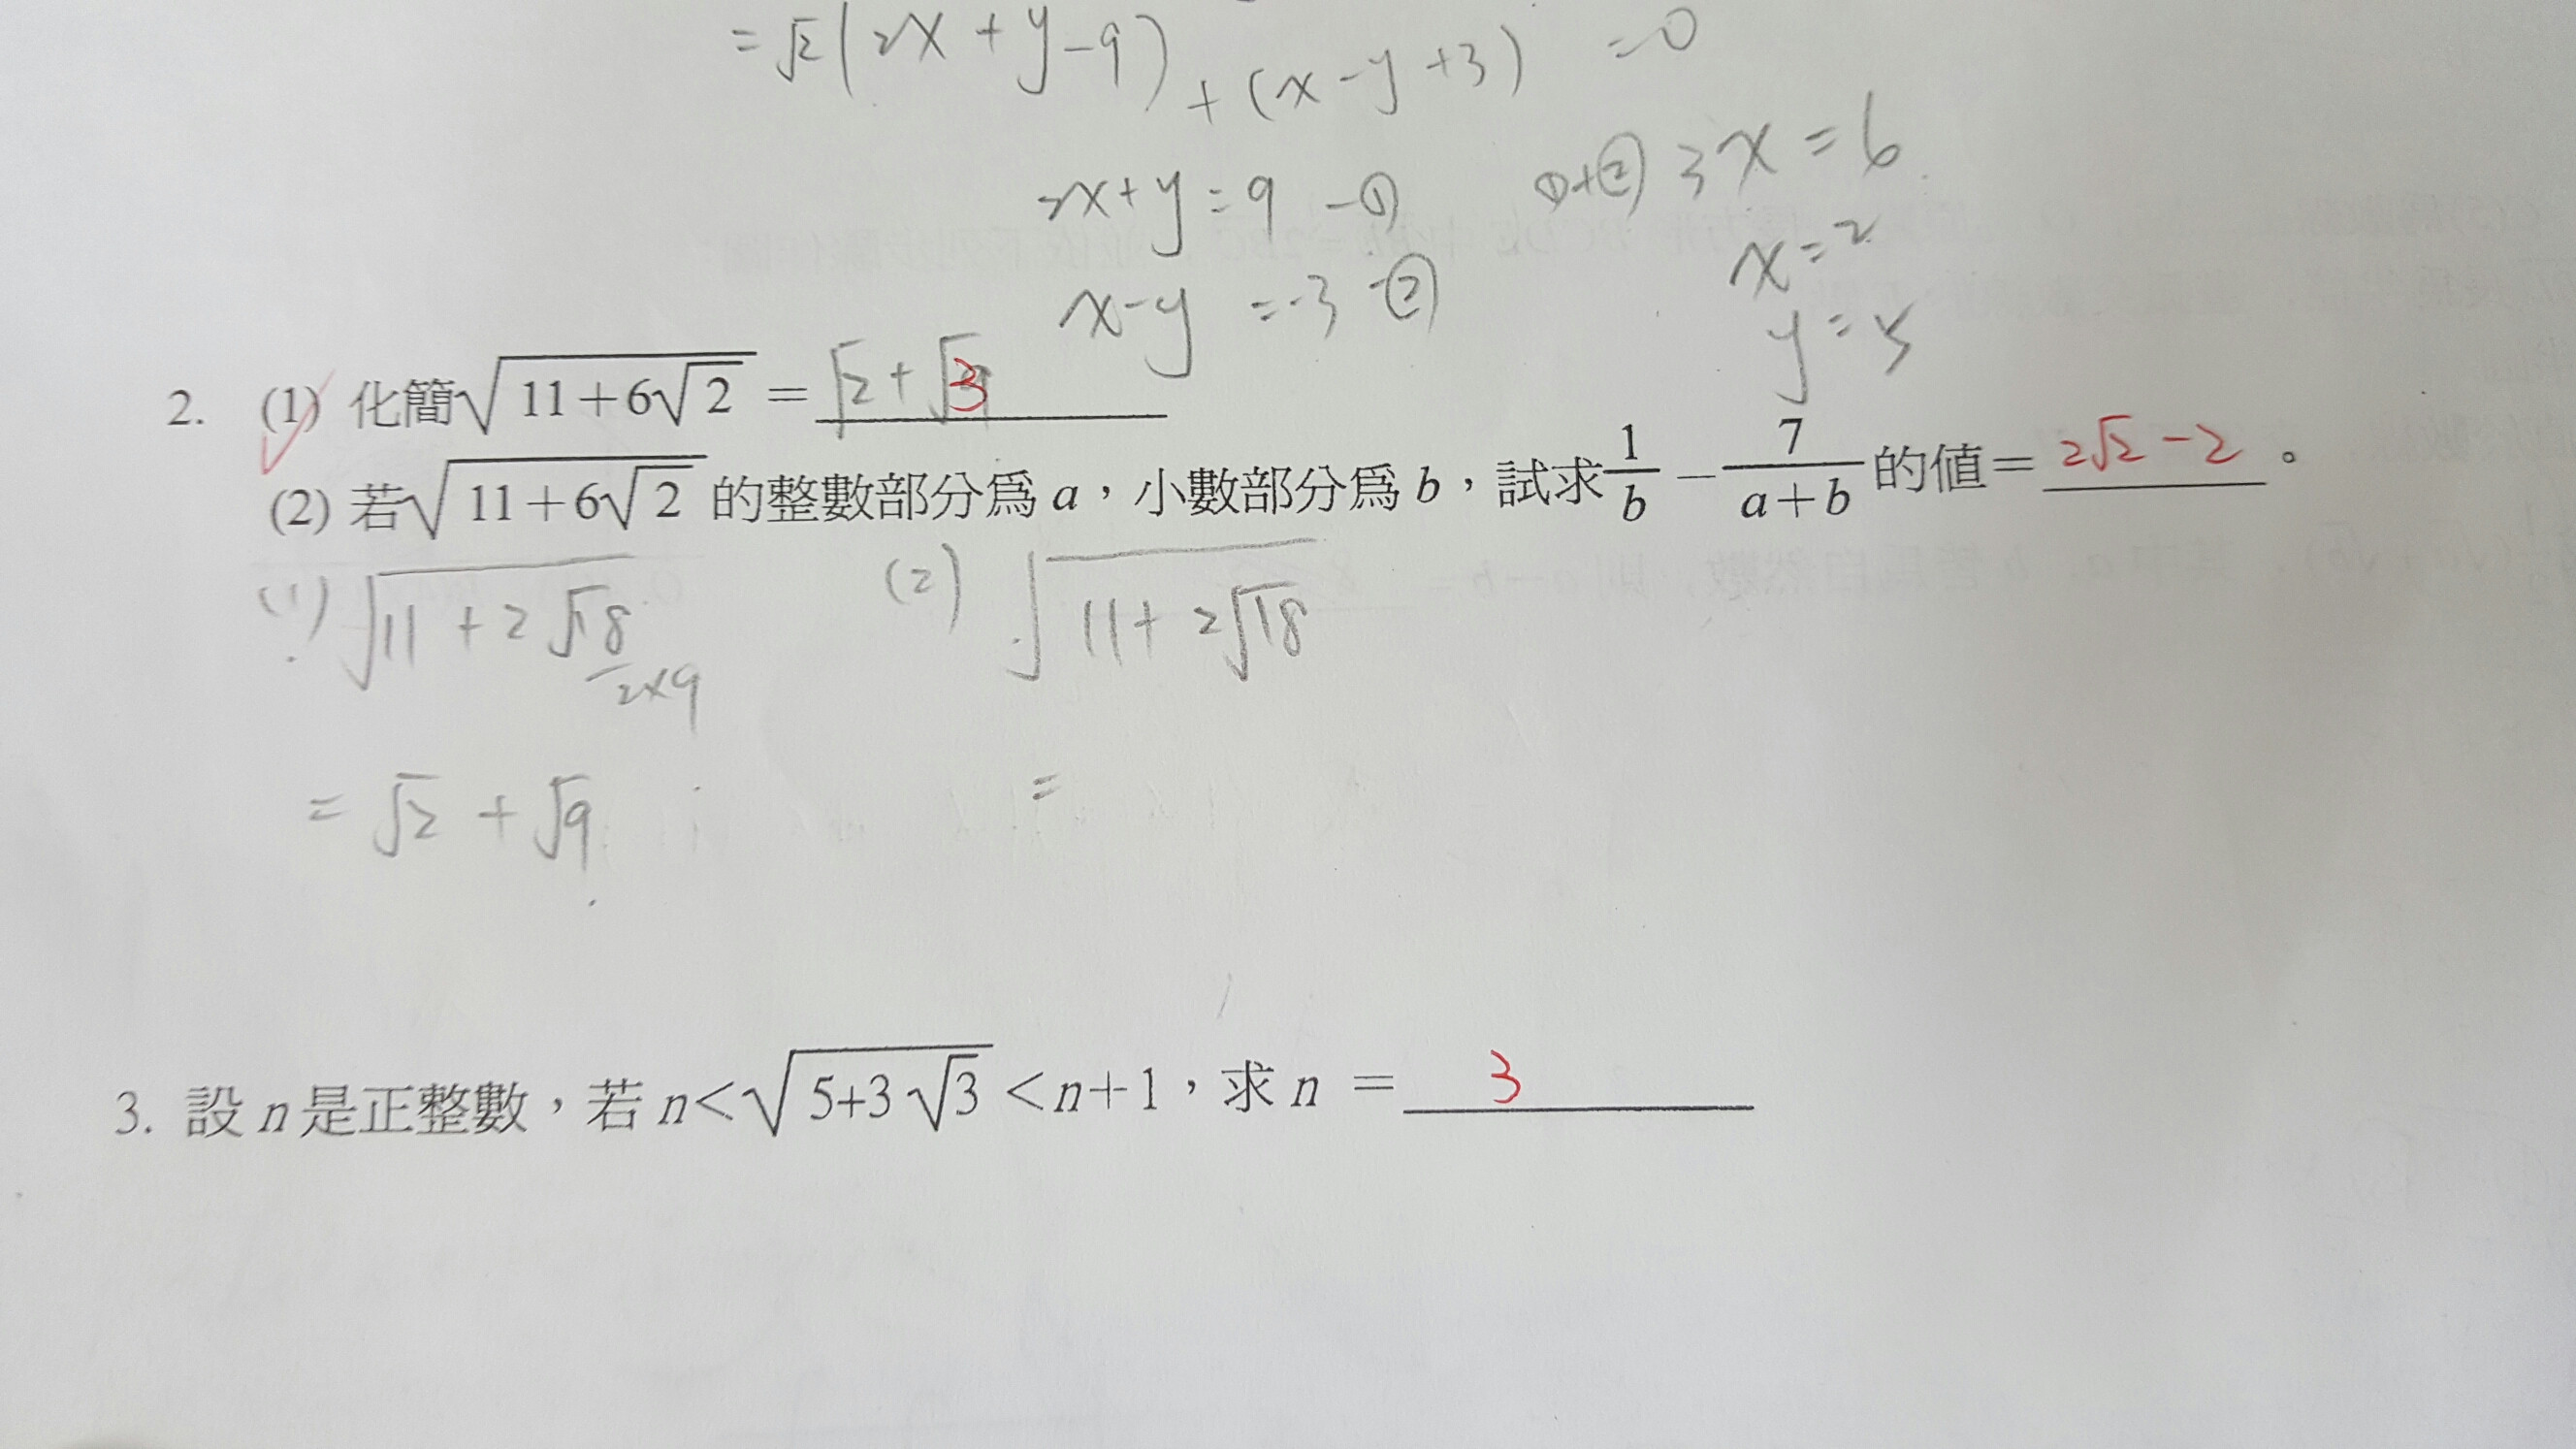 =√2(2x+y-9)+(x-y+3)=0
2x+y=9 -① ①+② 3x=6
x-y=-3 -② x=2
y=5
2. (1) 化簡√(11+6√2) = √2+√3
(2) 若√(11+6√2)的整數部分爲 a，小數部分爲 b，試求1/b－7/(a+b)的值＝2√2-2。
(1) √(11+2√18) (2) √(11+2√18)
2×9
=√2+√9 =
3. 設 n 是正整數，若 n<√(5+3√3)<n+1，求 n = 3